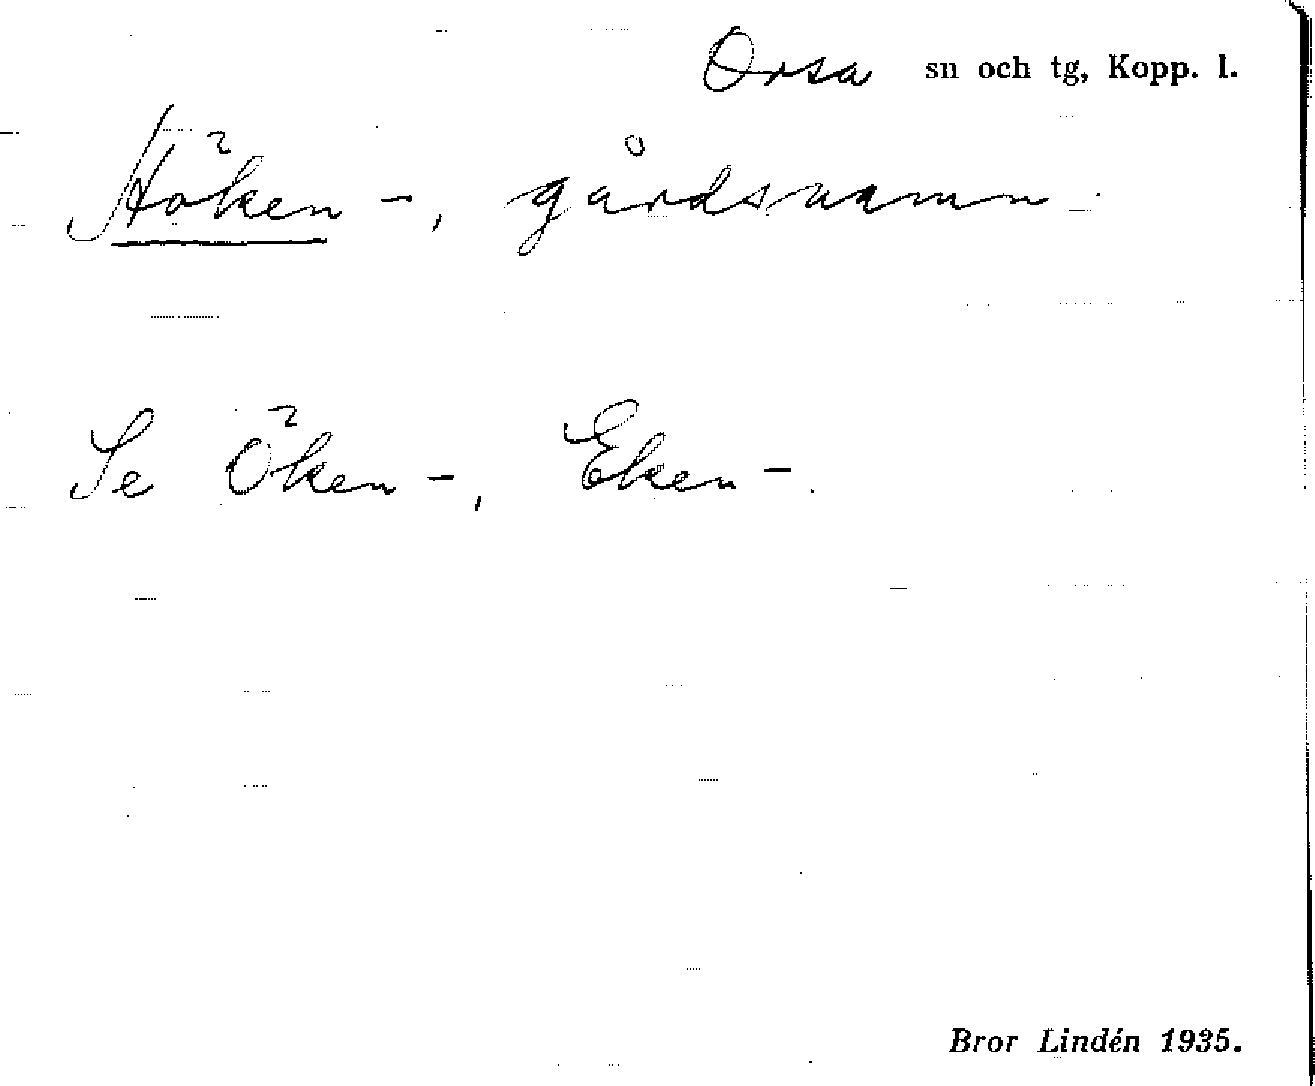 Orsa sn och tg, Kopp. l.
Höken-, gårdsnamn.
Se Öken-, Eken-.
Bror Lindén 1935.